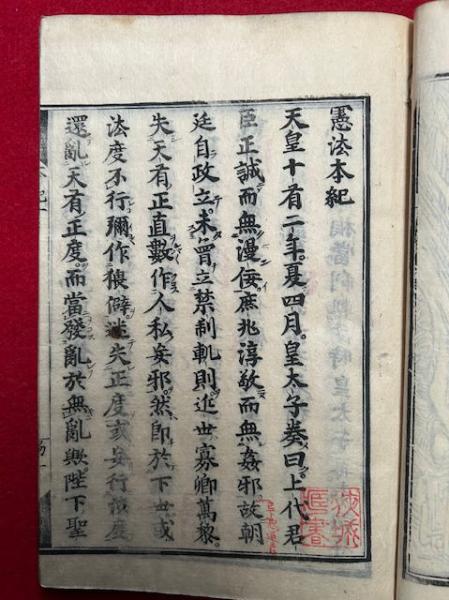 憲法本紀
天皇十有二年夏四月皇太子奏曰上代君
臣正誠而無漫佞庶兆淳敬而無姦邪故朝
廷自政立未曾立禁制軌則近世寡卿萬黎
失天有正直數作人私邪然即於下世或
法度不行彌作猥僻迷失正度或妄行度
還亂天有正度而當發亂於無亂歟陛下聖